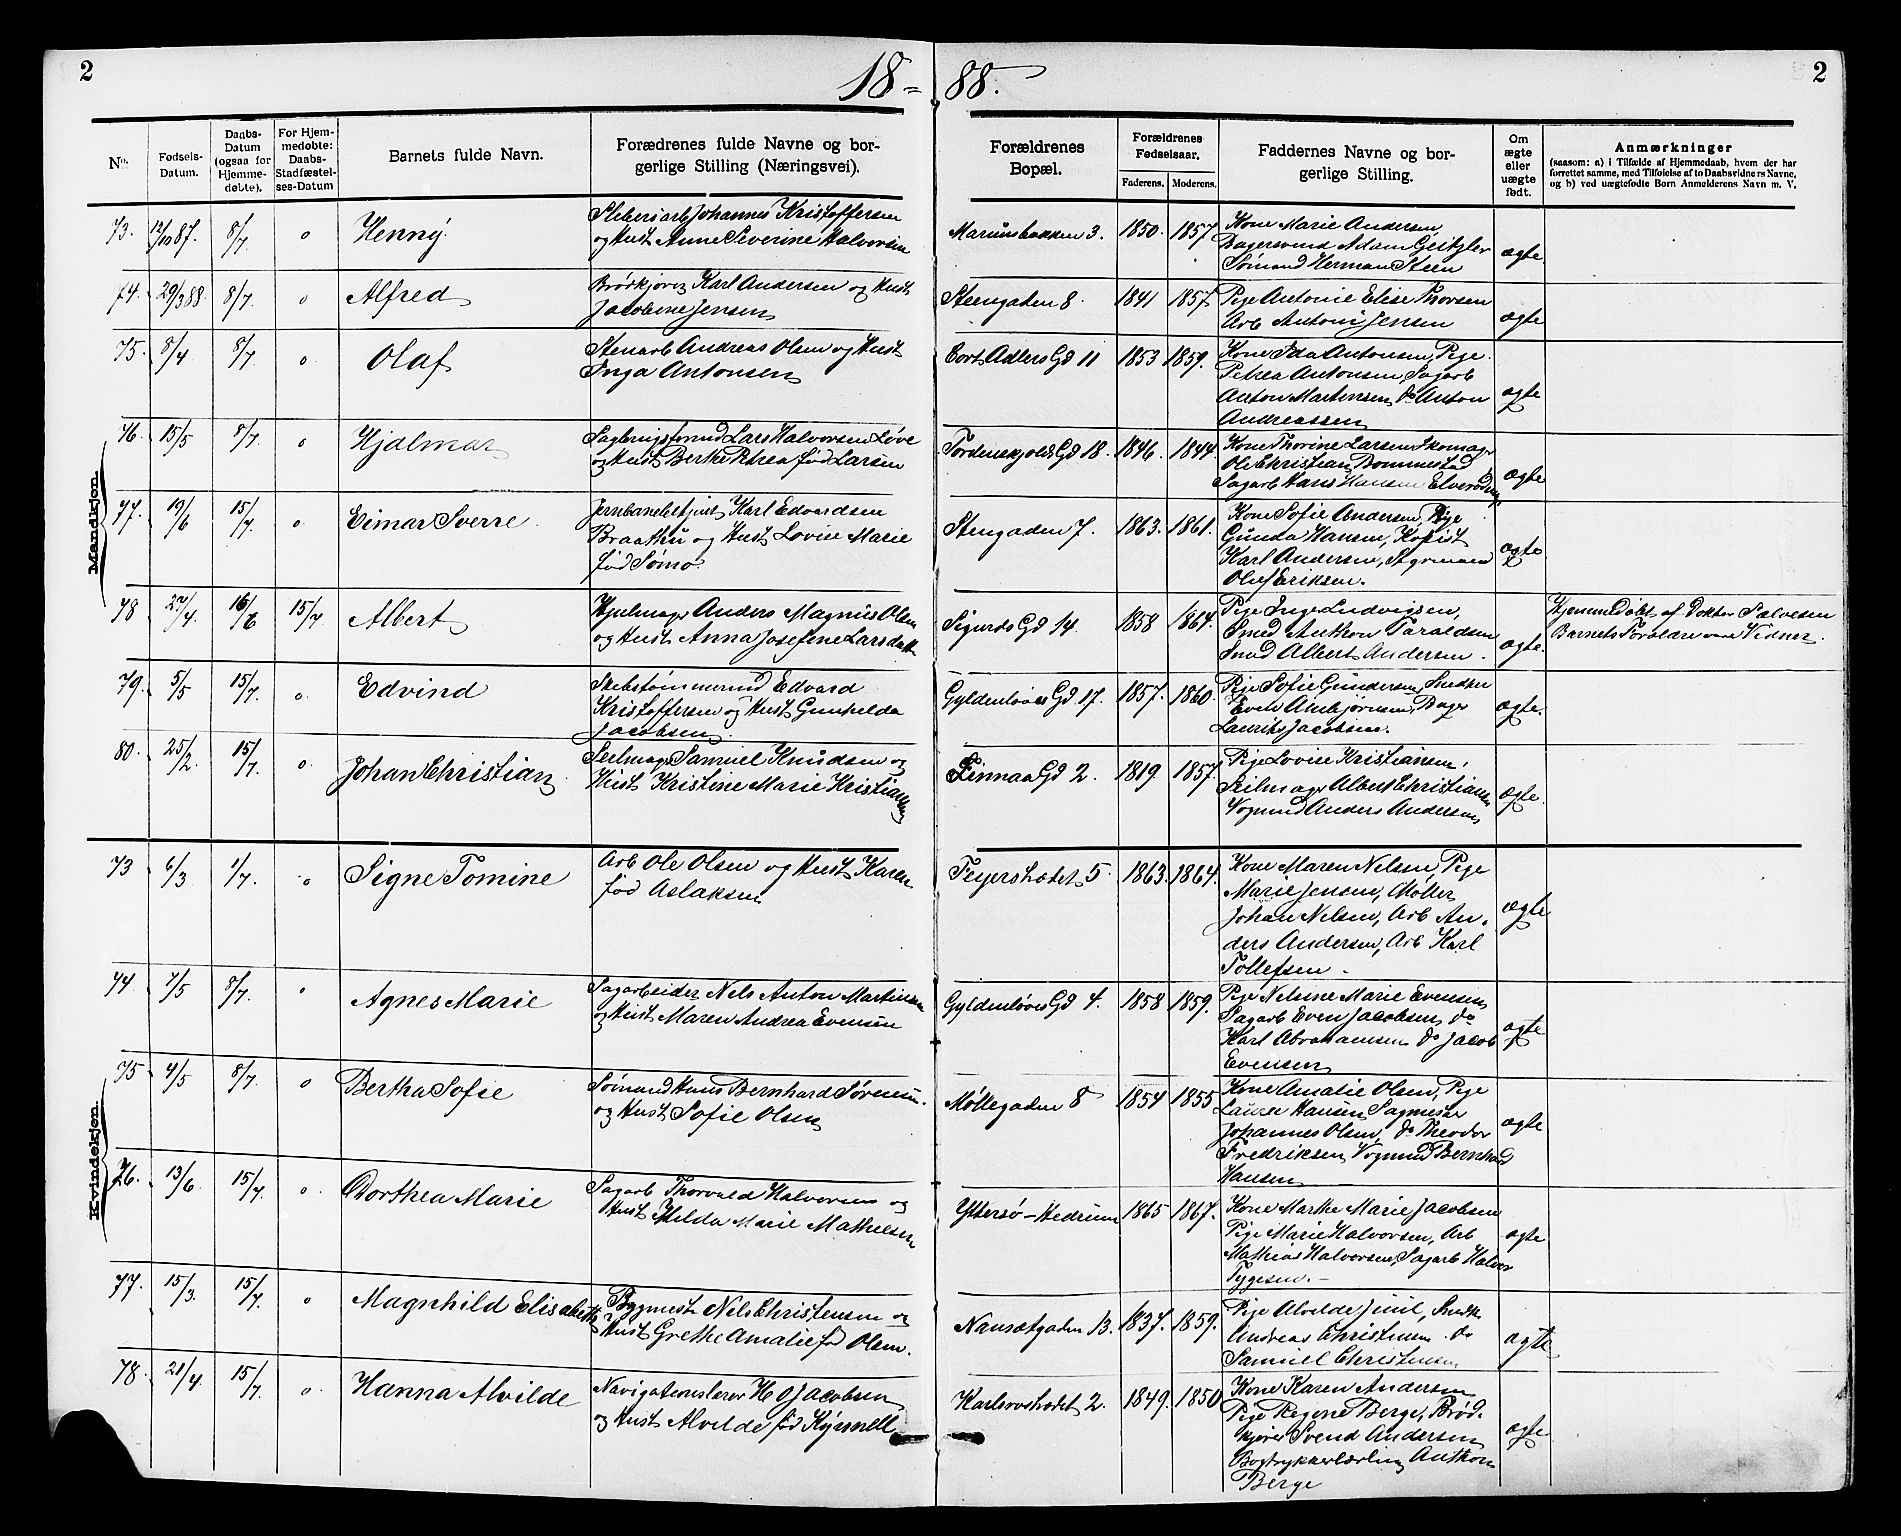 2
18 = 88.
2
No.
Fødsels-
Datum.
Daabs-
Datum
(ogsaa for
Hjemme-
døbte).
For Hjem-
medøbte:
Daabs-
Stadfæstel-
ses-Datum
Barnets fulde Navn.
Forædrenes fulde Navne og bor-
gerlige Stilling (Næringsvei).
Forældrenes
Bopæl.
Forældrenes
Fødselsaar.
Faderens.
Moderens.
Faddernes Navne og bor-
gerlige Stilling.
Om
ægte
eller
uægte
født.
Anmærkninger
(saasom: a) i Tilfælde af Hjemmedaab, hvem der har
forrettet samme, med Tilføielse af to Daabsvidners Navne,
og b) ved uægtefødte Børn Anmelderens Navn m. V.
Mandkjøn.
73. 12/10 87. 8/7. o Henny
Sliberiarb Johannes Kristoffersen
og Hust Anne Severine Halvorsen
3. 1850. 1857
Kone Marie Andersen,
Bagersvend Adam
Sømand Herman Steen
ægte
74. 29/3 88. 8/7. o Alfred
Brødkjører Karl Andersen og Hust
Jacobine Jensen
Steengaden 8. 1841 1857
Pige Antonie Elise Thorsen
Arb Antoni Jensen
ægte
75. 8/4 8/7. o Olaf
Stenarb Andreas Olsen og Hust
Inga Antonsen
Cort Adlers Gd 11 1853 1859.
Kone Ida Antonsen, Pige
Petrea Antonsen, Sagarb
Anton Martinsen, do Anton
Andreassen
ægte
76. 15/5 8/7. o Hjalmar
Lars Halvorsen Løve
og Hust Berthe Petrea fød Larsen
Tordenskjolds Gd 18. 1846. 1844.
Kone Thorine Larsen Skomagr
Ole Christian Bommestad
Sagarb Hans Hansen
ægte
77. 19/6 15/7. o Eimar Sverre
Jernbanebetjent Karl Edvardsen
Braathu og Hust Lovise Marie
fød Sømo.
Stengaden 7. 1863. 1861.
Kone Sofie Andersen, Pige
Gunda Hansen, Kopist
Karl Andersen, Styrmand
Oluf Eriksen.
ægte
78 27/4. 16/6 15/7 Albert
Hjulmagr Anders Magnus Olsen
og Hust Anna Josefine Larsdatt
Sigurds Gd 14. 1858 1864.
Pige Inge Ludvigsen,
Smed Anthon Taraldsen
Smed Albert Andersen.
ægte.
Hjemmedøbt af Doktor Salvesen
Barnets Forældre vare Vidner.
79. 5/5 15/7. o. Edvind
Skibstømmermd Edvard
Kristoffersen og Hust Gunhilda
Jacobsen.
Gyldenløves Gd 17. 1857. 1860.
Pige Sofie Gundersen, Snedker
Even Ambjørnsen, Bager
Laurits Jacobsen.
ægte.
80. 25/2. 15/7. o. Johan Christian
Seilmagr Samuel Knudsen og
Hust Kristine Marie Kristiansen
Finnaa Gd 2. 1819 1857
Pige Lovise Kristiansen,
Seilmagr Albert Christiansen
Vognmd Anders Andersen
ægte.
Kvindekjøn.
73 6/3 1/7. o Signe Tomine
Arb Ole Olsen og Hust Karen
fød Aslaksen
5. 1863. 1864.
Kone Maren Nelsen, Pige
Marie Jensen, Møller
Johan Nelsen, Arb An-
ders Andersen, Arb Karl
Tollefsen.
ægte
74. 7/5 8/7. o Agnes Marie
Sagarbeider Nels Anton Martinsen
og Hust Maren Andrea Evensen
Gyldenløves Gd 4. 1858 1859.
Pige Nelsine Marie Evensen
Sagarb Even Jacobsen, do
Karl Abrahamsen do Jacob
Evensen
ægte
75 4/5 8/7. o Bertha Sofie
Sømand Hans Bernhard Sørensen
og Hust Sofie Olsen
Møllegaden 8 1854 1855
Kone Amalie Olsen, Pige
Laura Hansen, Sagmester
Johannes Olsen, do Theodor
Fredriksen, Vognmd Bernhard
Hansen
ægte
76. 13/6 15/7. o. Dorthea Marie
Sagarb Thorvald Halvorsen og
Hust Hilda Marie Mathiesen
Yttersø-Hedrum 1865 1867.
Kone Marthe Marie Jacobsen
Pige Marie Halvorsen, Arb
Mathias Halvorsen, Sagarb Halvor
Tygesen.
ægte
77. 15/3. 15/7. o Magnhild Elisabeth
Bygmest Nels Christensen og
Hust Grethe Amalie fød Olsen.
Nansetgaden 13. 1837. 1859.
Pige Alvilde Juul, Snedk
Andreas Christensen. do
Samuel Christensen
ægte
78. 21/4. 15/7. o. Hanna Alvilde
Navigationslærer H O Jacobsen
og Hust Alvilde fød Kynnell
2. 1849. 1850
Kone Karen Andersen
Pige Regine Berge, Brød-
kjører Svend Andersen
Bogtrykkerlærling Anthon
Berge
ægte